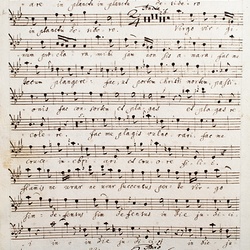 are in planctu in planctu desidero
in planctu desidero. Virgo vir gi
num praeclara mihi jam non sis amara fac me
tecum plangere fac, ut portem Christi mortem, passi
onis fac consortem et plagas et plagas re
colere. fac me plagis vulnerari, fac me
cruce inebriari et cruore filii.
flammis ne urar ne urar succensus per te virgo
sim defensus sim defensus in die judicii
in die judicii in die ju